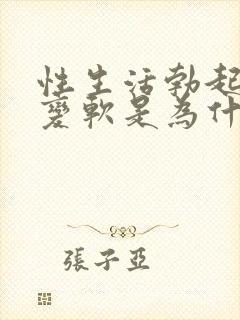 性生活勃起
變軟是為什
張子亞